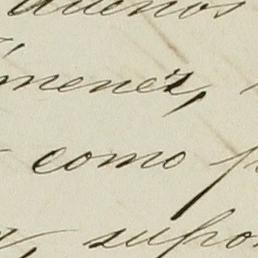 buenos
imenez,
como
, supon